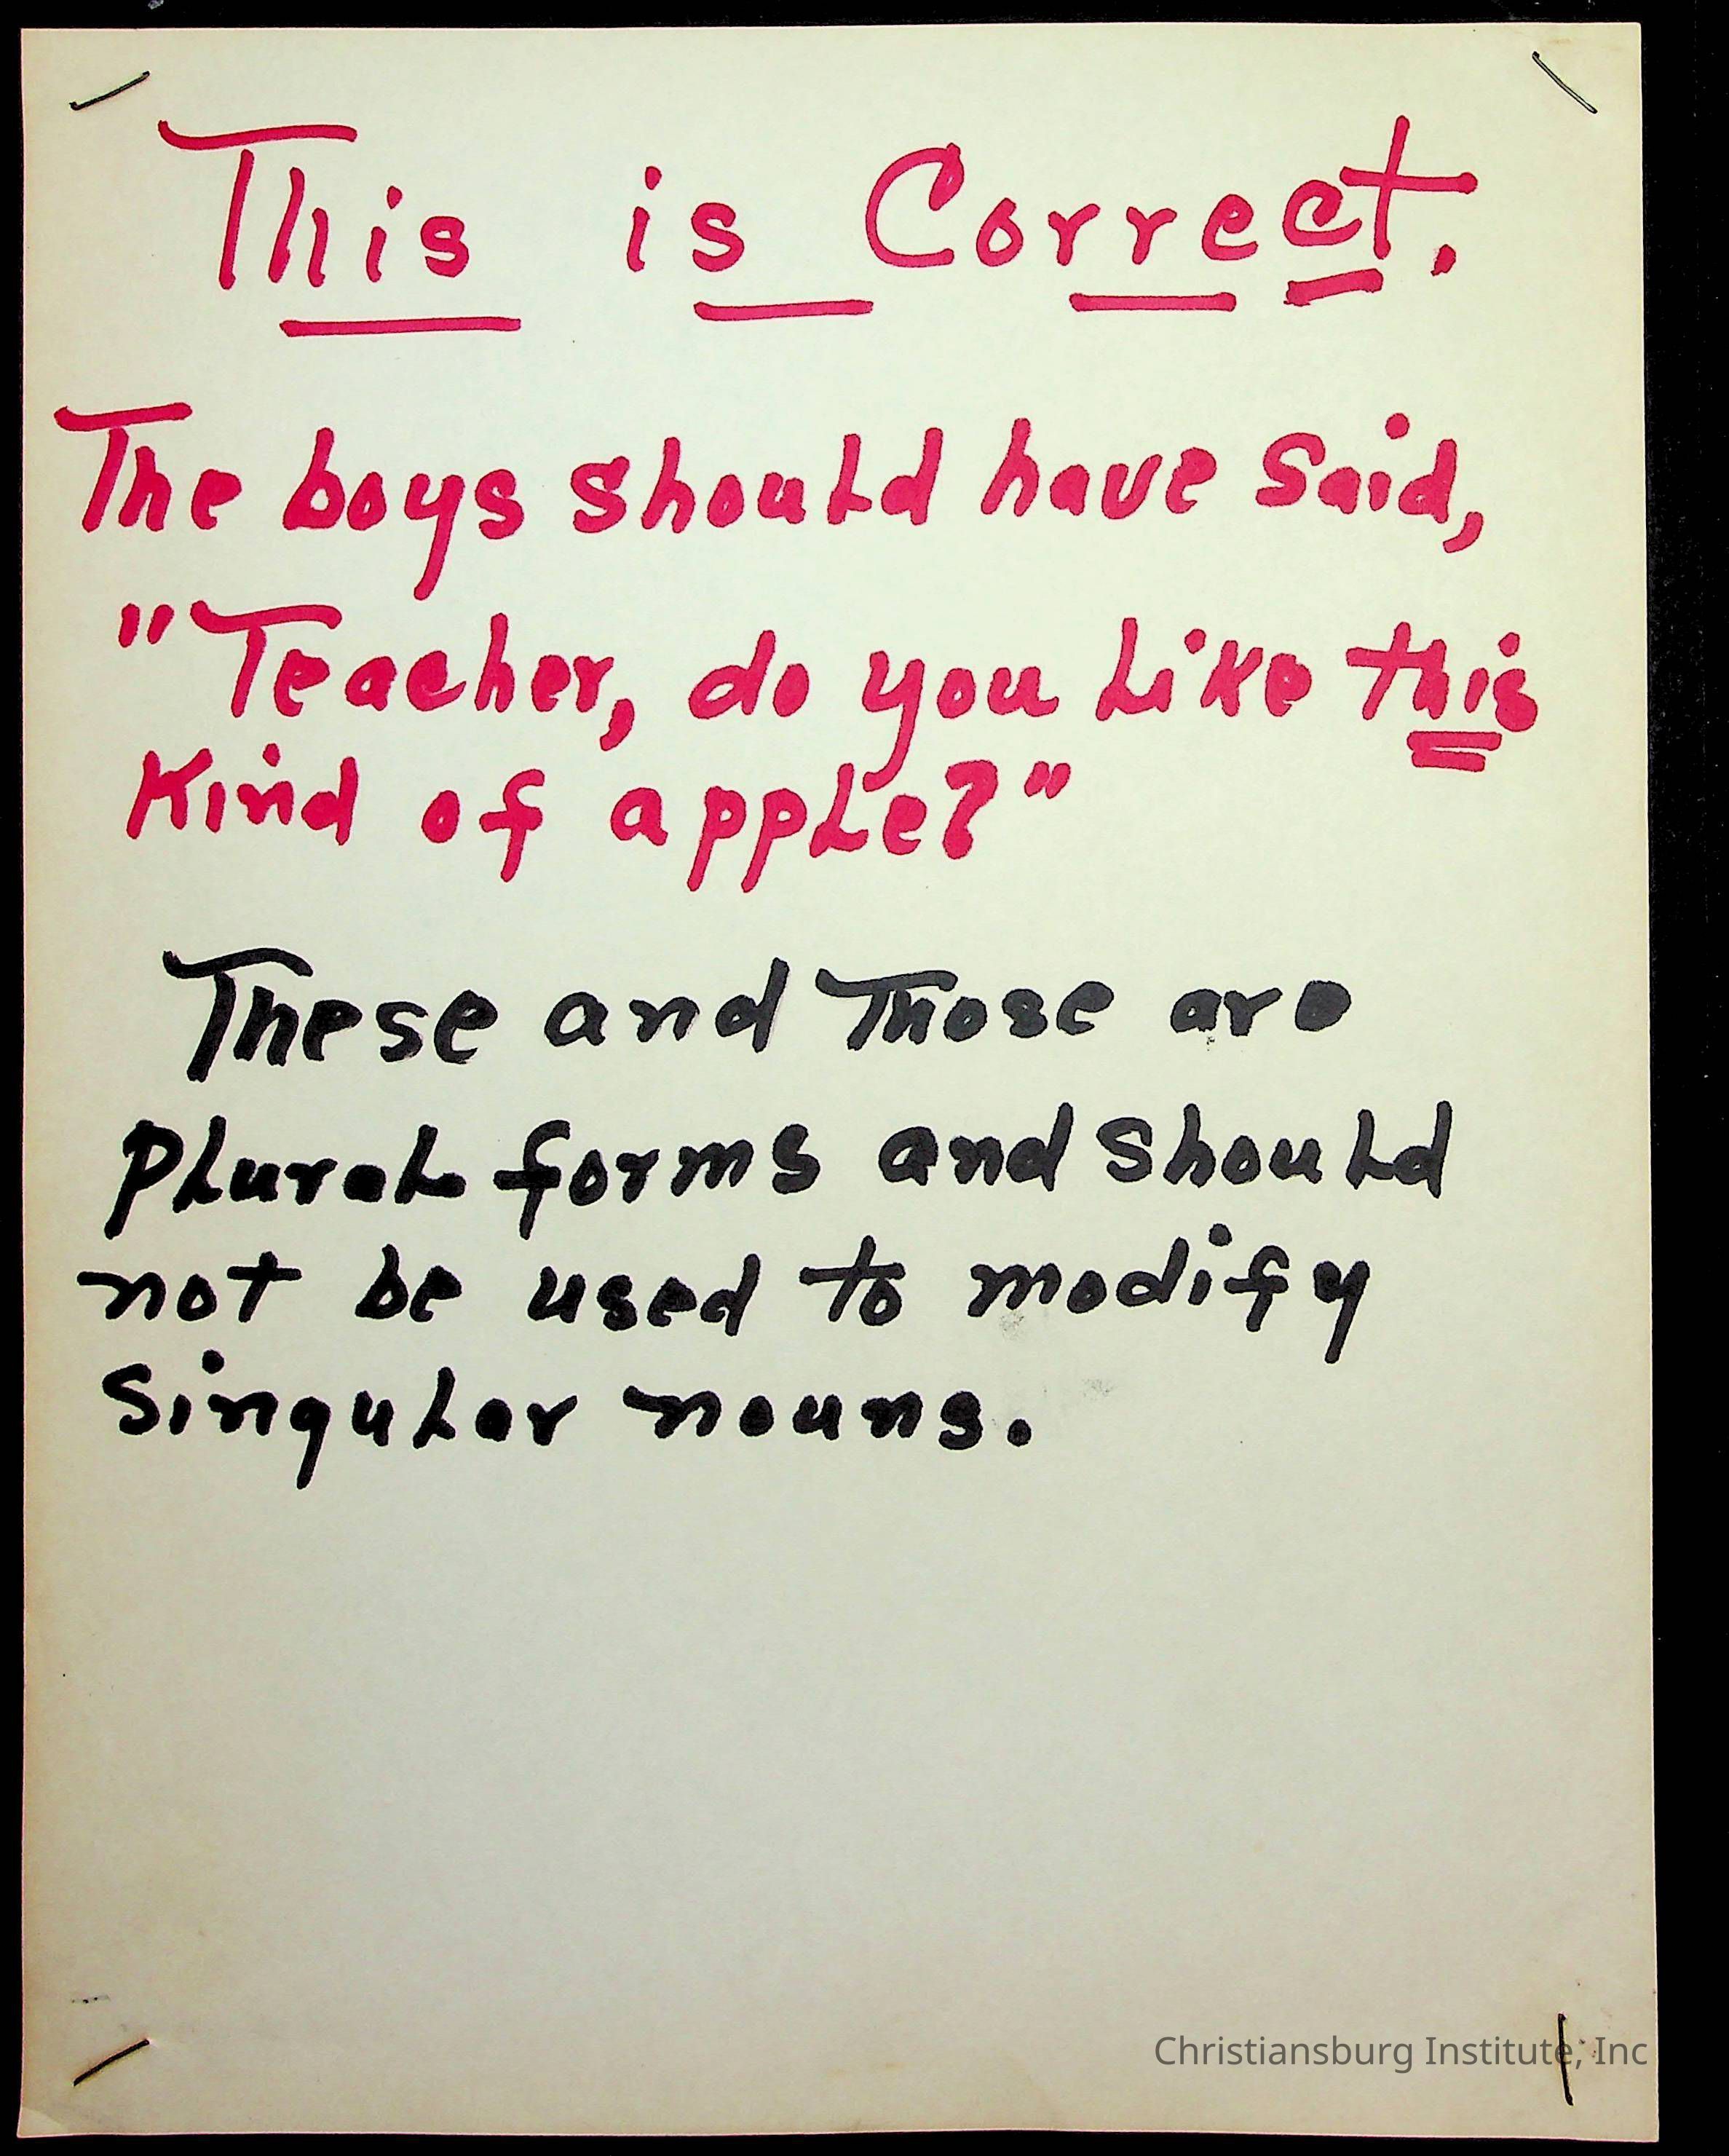 This is Correct.
The boys should have said,
"Teacher, do you like this
Kind of apple?"
These and Those are
plural forms and should
not be used to modify
Singular nouns.
Christiansburg Institute, Inc